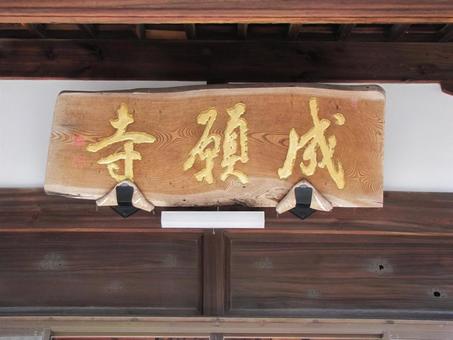 成願寺